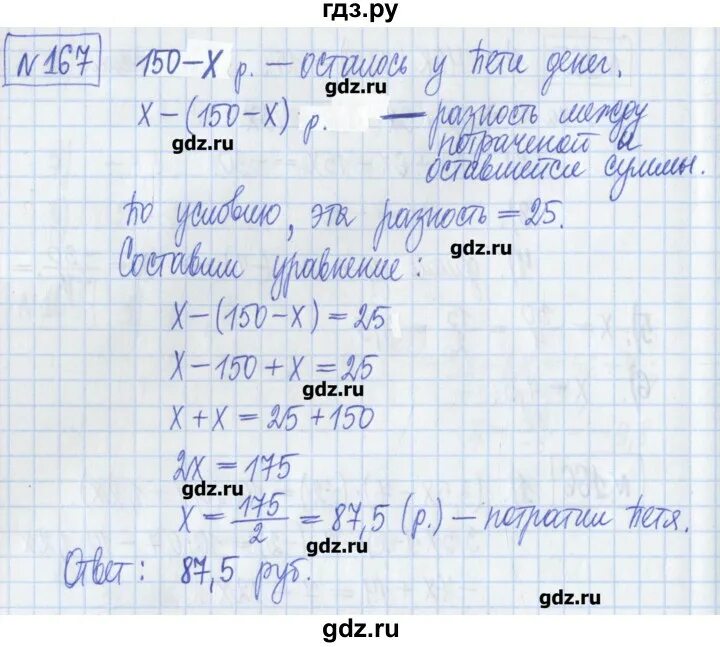 гдз.ру
№167
150-х р. — осталось у Пети денег.
gdz.ru
х-(150-х) р. — разность между
gdz.ru
потраченой и
оставшейся суммы.
По условию, эта разность = 25.
gdz.ru
Составим уравнение:
х-(150-х)=25
х-150+х=25
gdz.ru
х+х=25+150
2х=175
gdz.ru
х=175/2=87,5 (р.) — потратил Петя.
gdz.ru
Ответ: 87,5 руб.
gdz.ru
gdz.ru